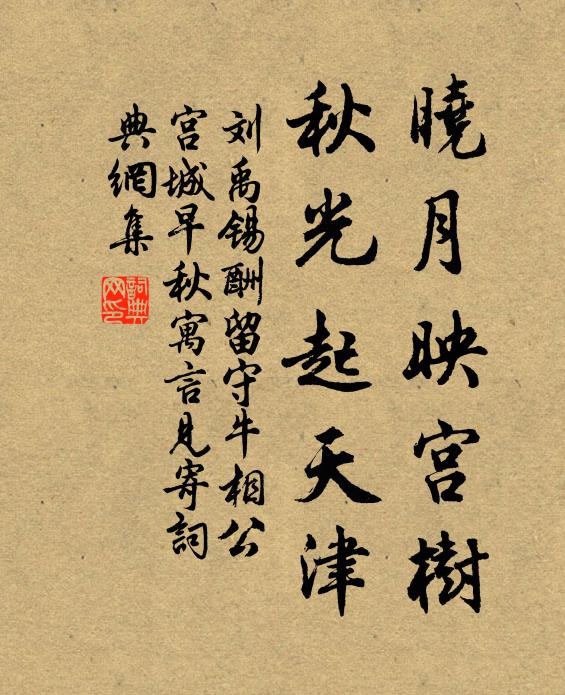 曉月映宫樹
秋光起天津
刘禹锡酬留守牛相公
宫城早秋寓言見寄詞
典網集
詞典網印